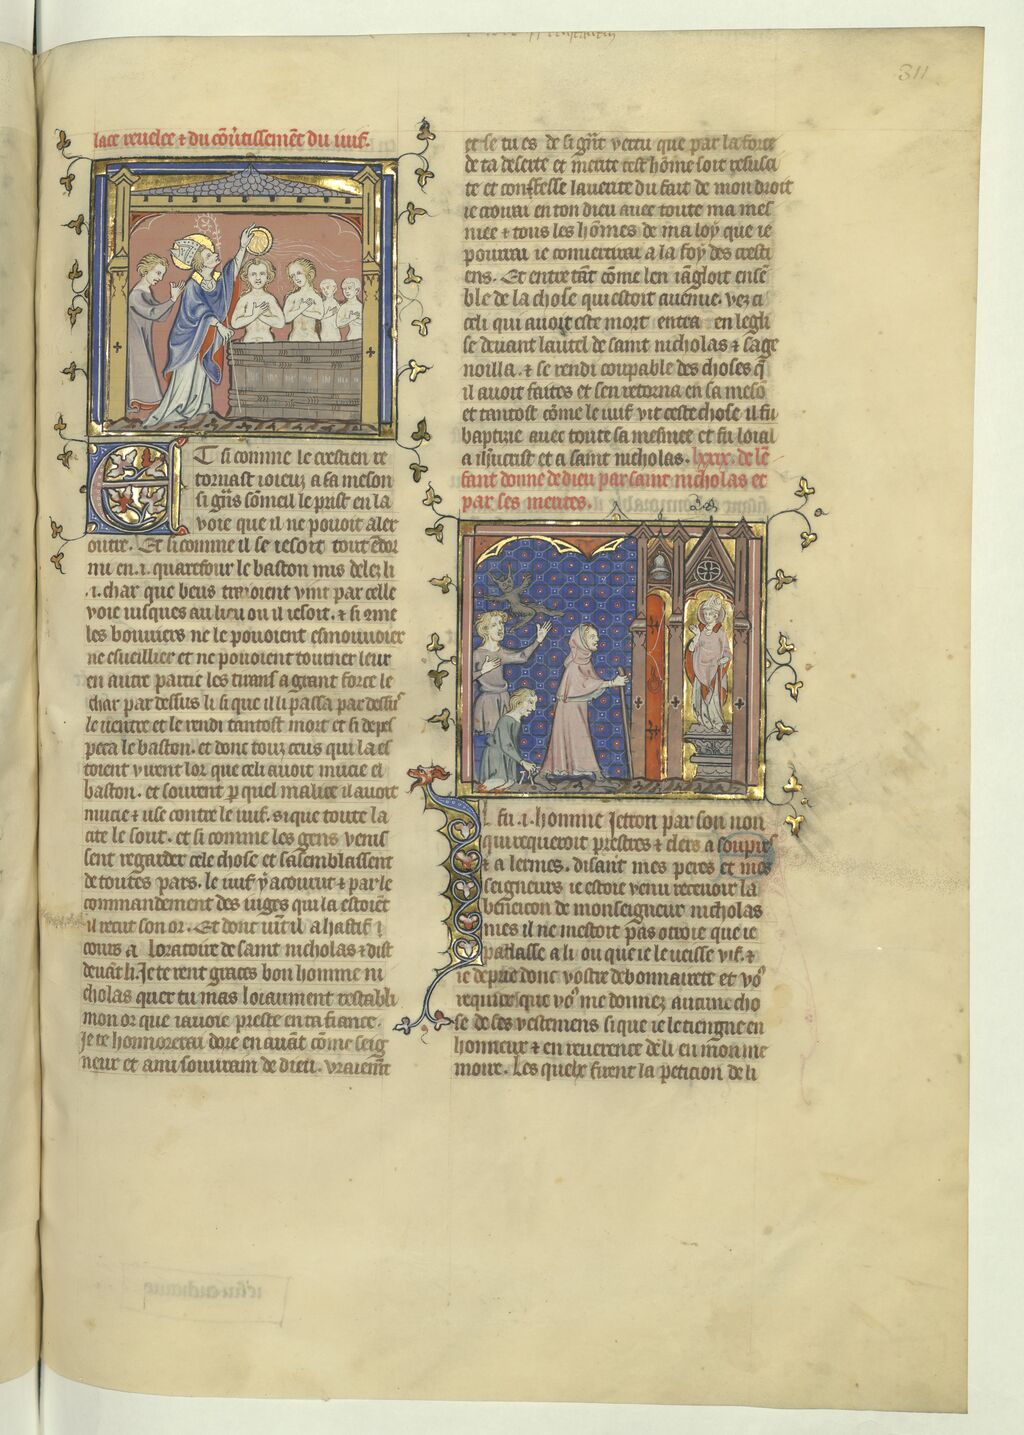 311
lace reuelee & du cōu̓tissemēt du iuif.
Et si comme le crestien re
tornast ioieux a sa meson
si grās sōmeil le prist en la
voie que il ne pouoit aler
outre. Et si comme il se iesoit tout ēdor
mi en .i. quarefour le baston mis delez li
.i. char que beus treoient vint par celle
voie iusques au lieu ou il iesoit. & si ōme
les bouuiers ne le pouoient esmouuoier
ne esueillier et ne pouoient tourner leur
en autre partie les tirans a grant force le
char par dessus li si que il li passa par dessus
le uentre et le rendi tantost mort et si depes
peca le baston. et donc touz ceus qui la es
toient virent lor que celi auoit mucie el
baston. et sourent p quel malice il auoit
mucie & use contre le iuif. si que toute la
cite le sout. et si comme les gens venis
sent regarder cele chose et sasemblassent
de toutes pars. le iuif y acourut & par le
commandement des iuges qui la estoiēt
il recut son or. Et donc uīt il a hastif
cours a loratoire de saint nicholas & dist
deuāt li. Je te rent graces bon homme ni
cholas quer tu mas loiaument restabli
mon or que iauoie preste en ta fiance.
Je te honnorerai dore en auāt cōme seig
neur et ami souurain de dieu. vraiemēt
et se tu es de si grāt vertu que par la force
de ta deserte et merite cest hōme soit resusci
te et confesse la uerite du fait de mon droit
ie crourai en ton dieu auec toute ma mes
niee & tous les hōmes de ma loy que ie
pourrai ie conuertirai a la foy des cresti
ens. Et entre tāt cōme len iāgloit ensē
ble de la chose qui estoit auenue. vez ci
celi qui auoit este mort entra en legli
se deuant lautel de saint nicholas & sage
noilla. & se rendi coupable des choses q̄
il auoit faites et sen retorna en sa mesō
et tantost cōme le iuif vit ceste chose il fu
baptizie auec toute sa mesniee et fu loial
a ih̄ucrist et a saint nicholas. lxxix. de lē
fant donne de dieu par saint nicholas et
par ses merites.
Il fu .i. homme Jetron par son non
qui requeroit prestres & clers a soupirs
& a lermes. disant mes peres et mes
seigneurs ie estoie venu receuoir la
beneicon de monseigneur nicholas
mes il ne mestoit pas otroie que ie
parlasse a li ou que ie le ueisse vif. &
ie deprie donc vostre debonnairete et vo᷒
requier que vo᷒ me donnez aucune cho
se de ses vestemens si que ie le tiengne en
honneur & en reuerence de li en mon me
moire. Les quelx firent la peticion de li